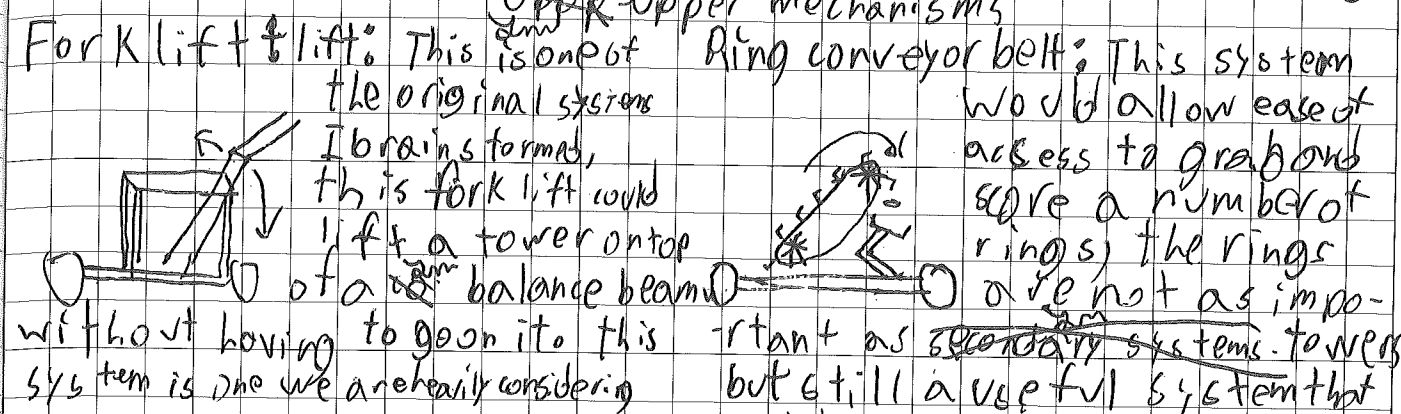 Upper mechanisms
Forklift lift: This is one of
the original systems
I brainstormed,
this forklift could
lift a tower on top
of a balance beam
without having to go on it. this
system is one we are heavily considering
Ring conveyor belt: This system
would allow ease of
access to grab and
score a number of
rings, the rings
are not as impo-
-rtant as secondary systems. towers
but still a useful system that